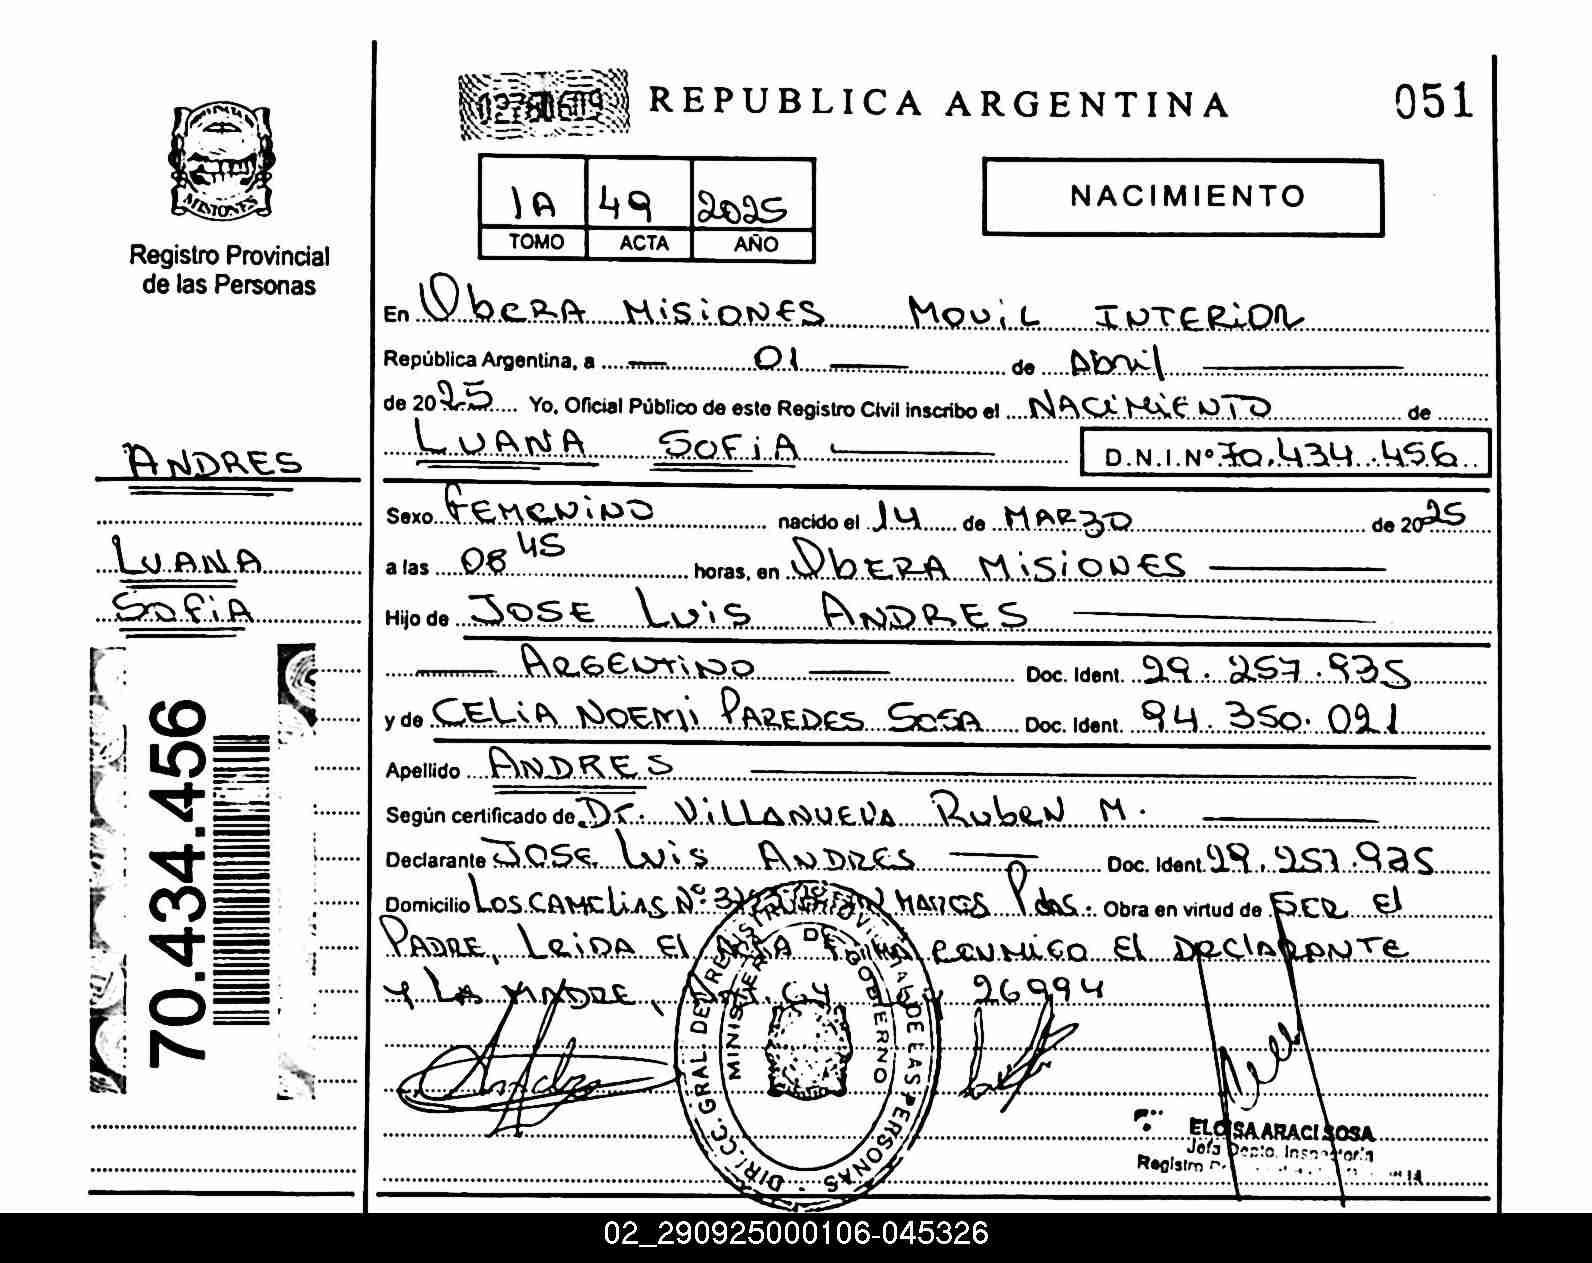 REPUBLICA ARGENTINA
051
MISIONES
Registro Provincial
de las Personas
1A 49 2025
TOMO ACTA AÑO
NACIMIENTO
En Obera Misiones Movil Interior
República Argentina, a 01 de Abril
de 2025 Yo, Oficial Público de este Registro Civil inscribo el Nacimiento de
Luana Sofia D.N.I.Nº 70.434.456
Andres
Luana
Sofia
70.434.456
Sexo Femenino nacido el 14 de Marzo de 2025
a las 08 45 horas, en Obera Misiones
Hijo de Jose Luis Andres
Argentino Doc. Ident. 29.257.935
y de Celia Noemi Paredes Sosa Doc. Ident. 94.350.021
Apellido Andres
Según certificado de Dr. Villanueva Ruben M.
Declarante Jose Luis Andres Doc. Ident. 29.257.935
Domicilio Los Camelias Nº Pdas. Obra en virtud de ser el
Padre, Leida el conmigo el declarante
y la madre, 26994
DIRECC. GRAL. DEL REGISTRO PROVINCIAL DE LAS PERSONAS
MINISTERIO DE GOBIERNO
ELOISA ARACI SOSA
Jefa Depto. Inspectoria
Registro
02_290925000106-045326